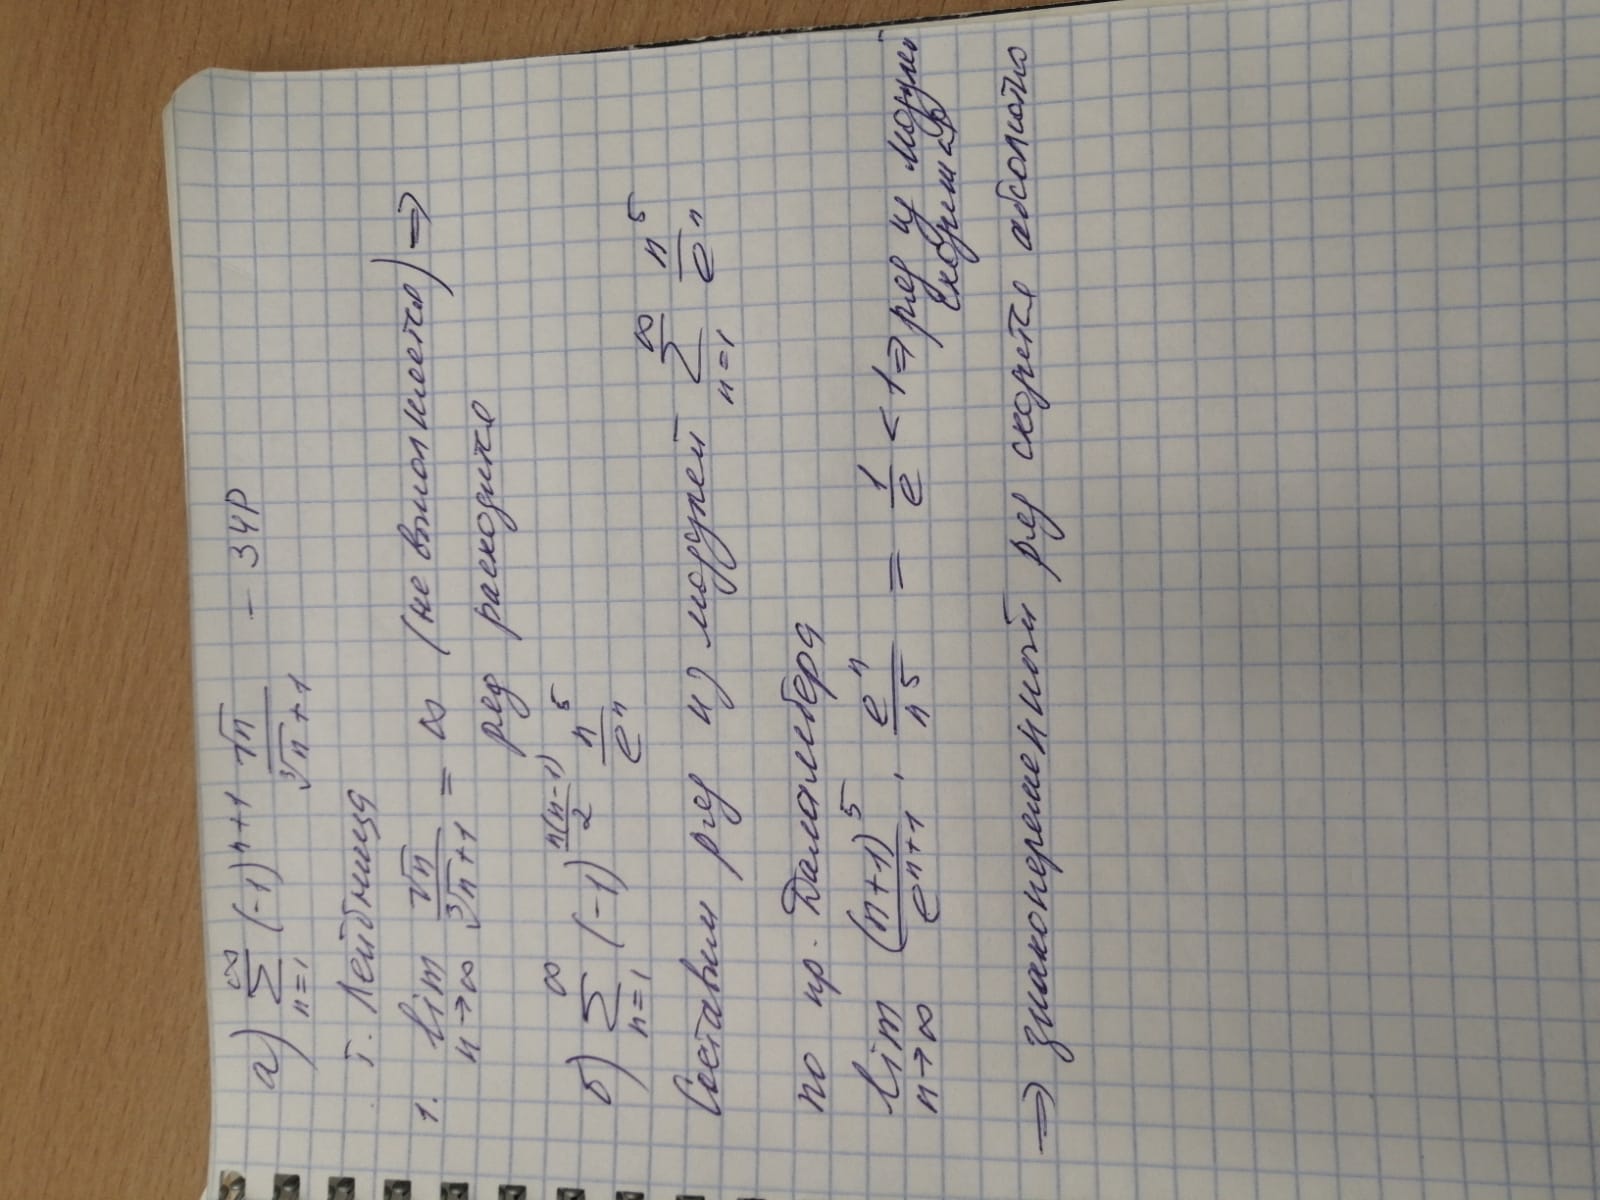 а) ∑_{n=1}^{∞} (-1)^{n+1} √n / (∛n + 1) - ЗЧР
т. Лейбница
1. lim_{n→∞} √n / (∛n + 1) = ∞ (не выполняется) ⇒
ряд расходится
б) ∑_{n=1}^{∞} (-1)^{n(n-1)/2} n^5 / e^n
Составим ряд из модулей ∑_{n=1}^{∞} n^5 / e^n
по пр. Даламбера
lim_{n→∞} (n+1)^5 / e^{n+1} · e^n / n^5 = 1/e < 1 ⇒ ряд из модулей
сходится
⇒ знакопеременный ряд сходится абсолютно